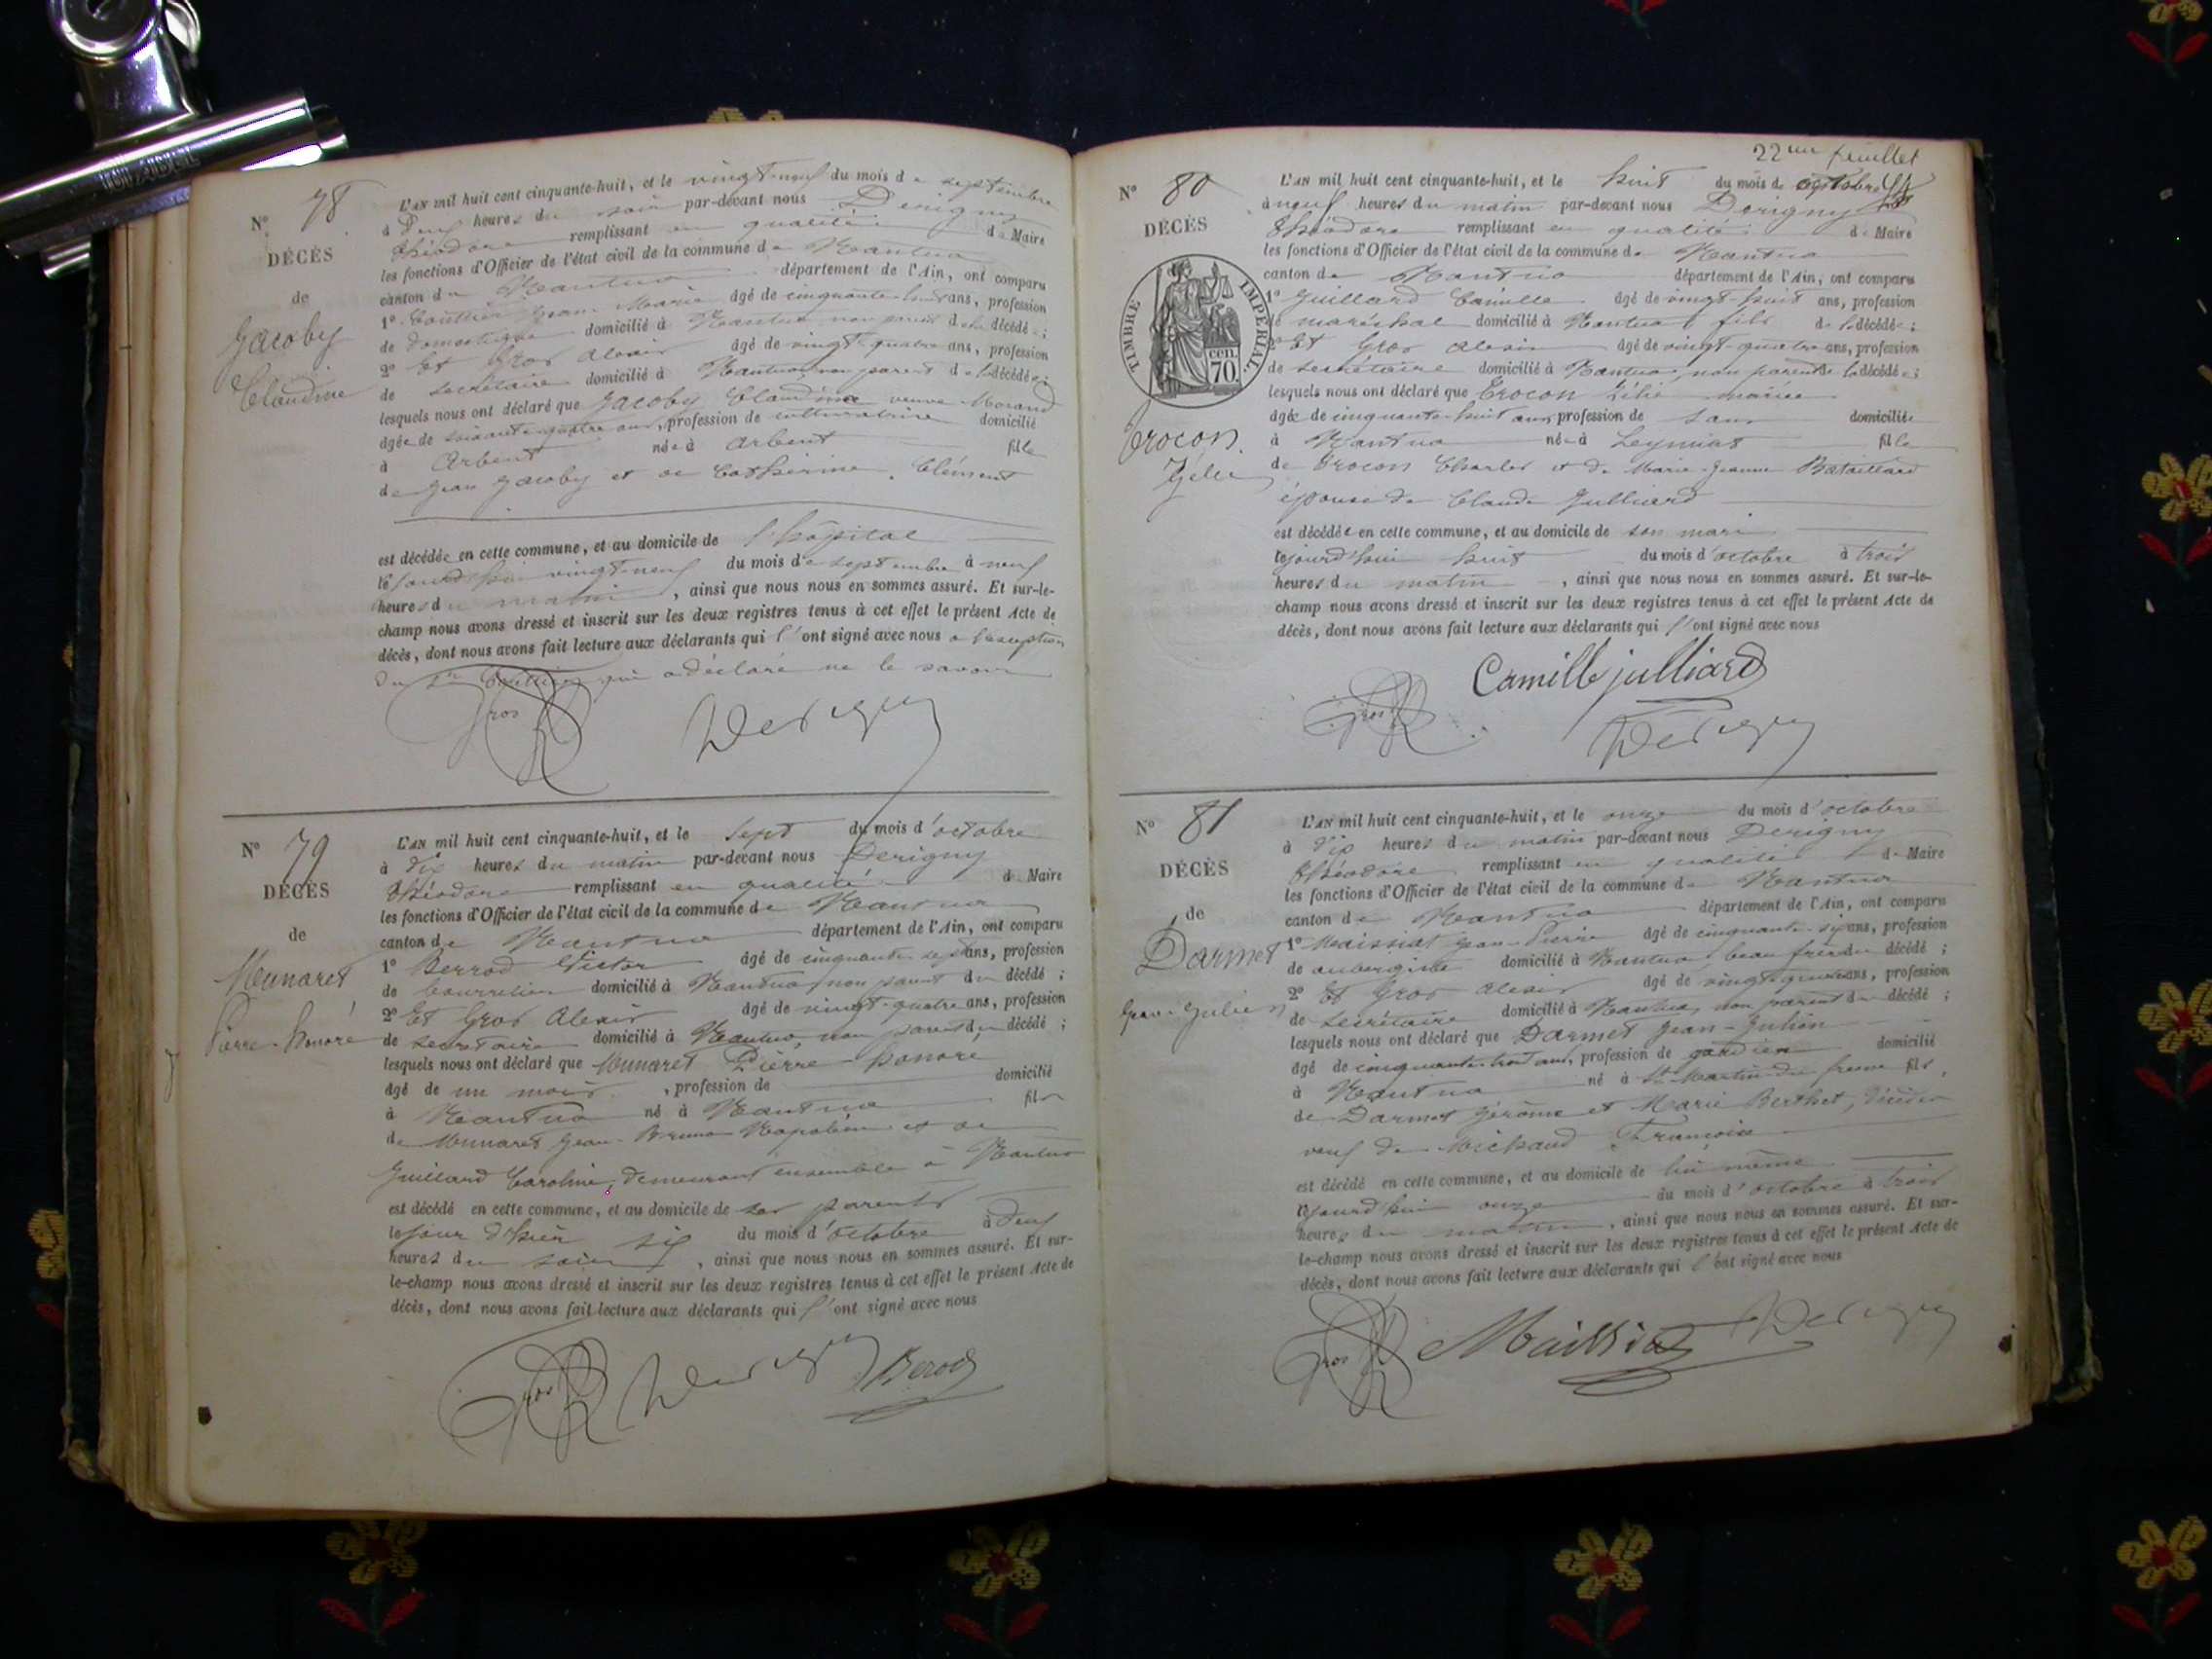 N° 78
DÉCÈS
de
Jacoby
Claudine
L'AN mil huit cent cinquante-huit, et le vingt-neuf du mois de septembre
à Deux heures du soir par-devant nous Derigny
Théodore remplissant en qualité de Maire
les fonctions d'Officier de l'état civil de la commune de Nantua
canton de Nantua département de l'Ain, ont comparu
1° Jean-Marie âgé de cinquante-huit ans, profession
de domestique domicilié à Nantua non parent de la décédée;
2° Et Gros Alexis âgé de vingt-quatre ans, profession
de secrétaire domicilié à Nantua non parent de la décédée;
lesquels nous ont déclaré que Jacoby Claudine veuve Morand
âgée de soixante-quatre ans, profession de cultivatrice domicilié
à Arbent née à Arbent fille
de Jean Jacoby et de Catherine Clément
est décédée en cette commune, et au domicile de l'hôpital
le jourd'hui vingt-neuf du mois de septembre à neuf
heures du matin, ainsi que nous nous en sommes assuré. Et sur-le-
champ nous avons dressé et inscrit sur les deux registres tenus à cet effet le présent Acte de
décès, dont nous avons fait lecture aux déclarants qui l'ont signé avec nous à l'exception
du Sr qui a déclaré ne le savoir
Gros Derigny
N° 79
DÉCÈS
de
Munaret
Pierre-honoré
L'AN mil huit cent cinquante-huit, et le sept du mois d'octobre
à Dix heures du matin par-devant nous Derigny
Théodore remplissant en qualité de Maire
les fonctions d'Officier de l'état civil de la commune de Nantua
canton de Nantua département de l'Ain, ont comparu
1° Berrod Victor âgé de cinquante-sept ans, profession
de bourrelier domicilié à Nantua, non parent du décédé;
2° Et Gros Alexis âgé de vingt-quatre ans, profession
de secrétaire domicilié à Nantua, non parent du décédé;
lesquels nous ont déclaré que Munaret Pierre-honoré
âgé de un mois, profession de domicilié
à Nantua né à Nantua fils
de Munaret Jean-Bruno Napoléon et de
Juillard Caroline, demeurant ensemble à Nantua
est décédé en cette commune, et au domicile de ses parents
le jour d'hier six du mois d'octobre à deux
heures du soir, ainsi que nous nous en sommes assuré. Et sur-
le-champ nous avons dressé et inscrit sur les deux registres tenus à cet effet le présent Acte de
décès, dont nous avons fait lecture aux déclarants qui l'ont signé avec nous
Gros Derigny Berod
22me feuillet
N° 80
DÉCÈS
TIMBRE IMPÉRIAL
70 cen.
Crocon
Zélie
L'AN mil huit cent cinquante-huit, et le huit du mois de octobre
à neuf heures du matin par-devant nous Derigny
Théodore remplissant en qualité de Maire
les fonctions d'Officier de l'état civil de la commune de Nantua
canton de Nantua département de l'Ain, ont comparu
1° Juillard Camille âgé de vingt-huit ans, profession
de maréchal domicilié à Nantua, fils de la décédée;
2° Et Gros Alexis âgé de vingt-quatre ans, profession
de secrétaire domicilié à Nantua, non parent de la décédée;
lesquels nous ont déclaré que Crocon Zélie mariée
âgée de cinquante-huit ans, profession de sans domiciliée
à Nantua née à Leymiat fille
de Crocon Charles et de Marie-Jeanne Bataillard
épouse de Claude Julliard
est décédée en cette commune, et au domicile de son mari
le jourd'hui huit du mois d'octobre à trois
heures du matin, ainsi que nous nous en sommes assuré. Et sur-le-
champ nous avons dressé et inscrit sur les deux registres tenus à cet effet le présent Acte de
décès, dont nous avons fait lecture aux déclarants qui l'ont signé avec nous
Camille julliard
Gros Derigny
N° 81
DÉCÈS
de
Darmet
Jean-Julien
L'AN mil huit cent cinquante-huit, et le onze du mois d'octobre
à Dix heures du matin par-devant nous Derigny
Théodore remplissant en qualité de Maire
les fonctions d'Officier de l'état civil de la commune de Nantua
canton de Nantua département de l'Ain, ont comparu
1° Maissiat Jean-Pierre âgé de cinquante-six ans, profession
de aubergiste domicilié à Nantua beau frère du décédé;
2° Et Gros Alexis âgé de vingt-quatre ans, profession
de secrétaire domicilié à Nantua, non parent du décédé;
lesquels nous ont déclaré que Darmet Jean-Julien
âgé de cinquante-trois ans, profession de gardien domicilié
à Nantua né à St Martin-du-fresne fils
de Darmet Jérôme et Marie Berthet, décédés
veuf de Michaud Françoise
est décédé en cette commune, et au domicile de lui même
le jourd'hui onze du mois d'octobre à trois
heures du matin, ainsi que nous nous en sommes assuré. Et sur-
le-champ nous avons dressé et inscrit sur les deux registres tenus à cet effet le présent Acte de
décès, dont nous avons fait lecture aux déclarants qui l'ont signé avec nous
Gros Maissiat Derigny